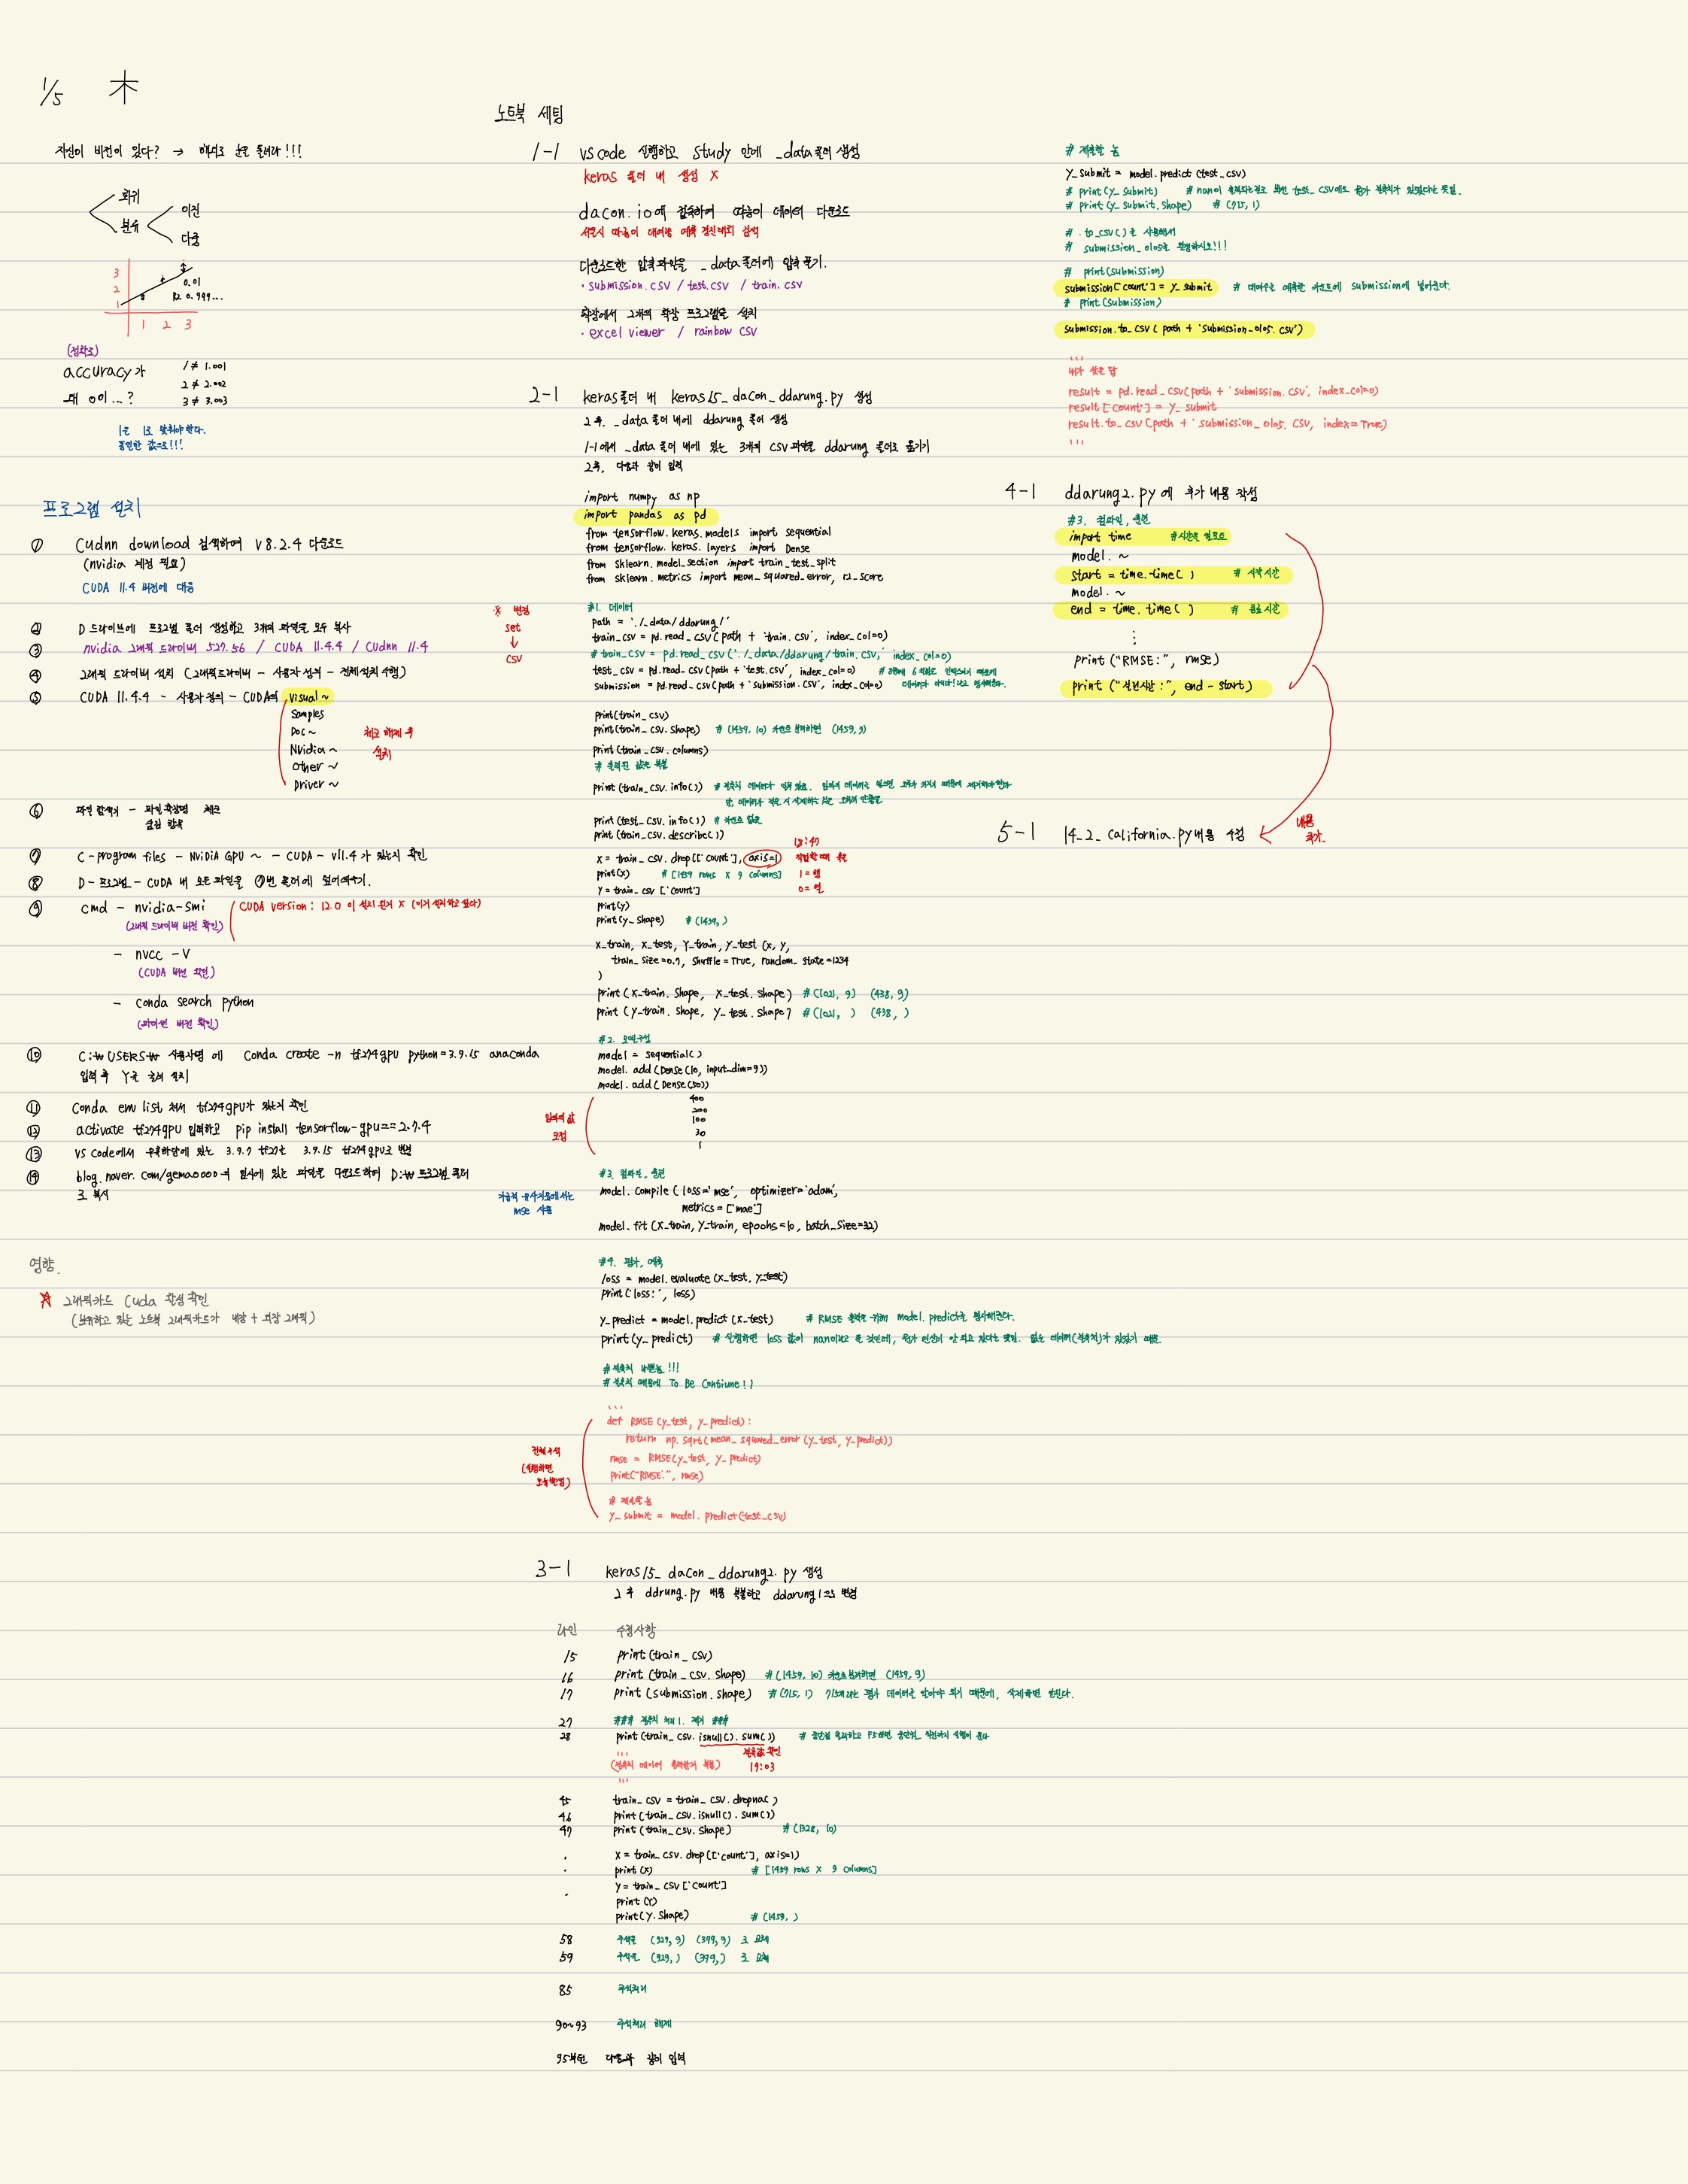 1/5 木
자신이 비전이 있다? → 해외로 눈을 돌려라!!!
회귀
분류
이진
다중
3
2
1
0.01
R2 0.999...
1 2 3
(정확도)
accuracy가
왜 0이...?
1 ≠ 1.001
2 ≠ 2.002
3 ≠ 3.003
1은 1로 맞춰야 한다.
동일한 값으로!!!
프로그램 설치
① Cudnn download 검색하여 v8.2.4 다운로드
(nvidia 계정 필요)
CUDA 11.4 버전에 대응
② D 드라이브에 프로그램 폴더 생성하고 3개의 파일을 모두 복사
③ nvidia 그래픽 드라이버 527.56 / CUDA 11.4.4 / CUdnn 11.4
④ 그래픽 드라이버 설치 (그래픽드라이버 - 사용자 설치 - 전체설치 수행)
⑤ CUDA 11.4.4 - 사용자 정의 - CUDA에 visual ~
Samples
Doc ~
Nvidia ~
other ~
Driver ~
체크 해제 후
설치
⑥ 파일 탐색기 - 파일 확장명 체크
숨김 항목
⑦ C - program files - NVIDIA GPU ~ - CUDA - v11.4 가 있는지 확인
⑧ D - 프로그램 - CUDA 내 모든 파일을 ⑦번 폴더에 덮어씌우기.
⑨ cmd - nvidia-smi
(그래픽 드라이버 버전 확인)
CUDA version : 12.0 이 설치 된거 X (이거 설치하고 싶다)
- nvcc -V
(CUDA 버전 확인)
- conda search python
(파이썬 버전 확인)
⑩ C:₩ USERS₩ 사용자명 에 Conda create -n tf274gpu python=3.9.15 anaconda
입력 후 Y를 눌러 설치
⑪ Conda env list 쳐서 tf274gpu가 있는지 확인
⑫ activate tf274gpu 입력하고 pip install tensorflow-gpu==2.7.4
⑬ VS code에서 우측하단에 있는 3.9.7 tf27을 3.9.15 tf274gpu로 변경
⑭ blog.naver.com/gema0000의 임시에 있는 파일을 다운로드하여 D:₩ 프로그램 폴더
로 복사
영향.
☆ 그래픽카드 Cuda 활성 확인
(보유하고 있는 노트북 그래픽카드가 내장 + 외장 그래픽)
노트북 세팅
1-1 vs code 실행하고 study 안에 _data폴더 생성
keras 폴더 내 생성 X
dacon.io에 접속하여 따릉이 데이터 다운로드
서울시 따릉이 대여량 예측 경진대회 검색
다운로드한 압축파일을 _data폴더에 압축 풀기.
· submission.csv / test.csv / train.csv
확장에서 2개의 확장 프로그램을 설치
· excel viewer / rainbow CSV
2-1 keras폴더 내 keras15_dacon_ddarung.py 생성
그 후, _data 폴더 내에 ddarung 폴더 생성
1-1에서 _data 폴더 내에 있는 3개의 csv 파일을 ddarung 폴더로 옮기기
그 후, 다음과 같이 입력
import numpy as np
import pandas as pd
from tensorflow.keras.models import sequential
from tensorflow.keras.layers import Dense
from sklearn.model_section import train_test_split
from sklearn.metrics import mean_squared_error, r2_score
※ 변경
set
↓
csv
#1. 데이터
path = './_data/ddarung/'
train_csv = pd.read_csv(path + 'train.csv', index_col=0)
# train_csv = pd.read_csv('./_data/ddarung/train.csv,' index_col=0)
test_csv = pd.read_csv(path + 'test.csv', index_col=0)
submission = pd.read_csv(path + 'submission.csv', index_col=0)
print(train_csv)
print(train_csv.shape) # (1459, 10) 카운트 분리하면 (1459, 9)
print(train_csv.columns)
# 출력된 값은 복붙
print(train_csv.info())
print(test_csv.info()) # 카운트 없음
print(train_csv.describe())
x = train_csv.drop(['count'], axis=1)
print(x) # [1459 rows x 9 columns]
y = train_csv ['count']
print(y)
print(y_shape) # (1459, )
1 = 행
0 = 열
x_train, x_test, y_train, y_test (x, y,
train_size=0.7, shuffle=True, random_state=1234
)
print(x_train.shape, x_test.shape) #(1021, 9) (438, 9)
print(y_train.shape, y_test.shape) #(1021, ) (438, )
#2. 모델구성
model = sequential()
model.add(Dense(10, input_dim=9))
model.add(Dense(50))
400
200
100
30
1
임의의 값
모델
#3. 컴파일, 훈련
model.compile (loss='mse', optimizer='adam',
metrics=['mae']
model.fit (x_train, y_train, epochs=10, batch_size=32)
mse 사용
#4. 평가, 예측
loss = model.evaluate (x_test, y_test)
print('loss:', loss)
y_predict = model.predict (x_test) # RMSE 출력을 위해 model.predict를 명시해준다.
print(y_predict)
# 결측치 나쁜놈!!!
# 결측치 때문에 To Be Contiune!!
'''
def RMSE (y_test, y_predict):
return np.sqrt(mean_squared_error (y_test, y_predict))
rmse = RMSE(y_test, y_predict)
print("RMSE:", rmse)
# 제출할 놈
y_submit = model.predict(test_csv)
전체 주석
(실행하면
오류 발생)
3-1 keras15_dacon_ddarung2.py 생성
그 후 ddrung.py 내용 복붙하고 ddarung1으로 변경
라인 수정사항
15 print(train_csv)
16 print(train_csv.shape) #(1459, 10) 카운트 분리하면 (1459, 9)
17 print(submission.shape)
27 ### 결측치 처리 1. 제거 ###
28 print(train_csv.isnull().sum())
'''
결측값 확인
19:03
(결측치 데이터 출력한거 복붙)
'''
45 train_csv = train_csv.dropna()
46 print(train_csv.isnull().sum())
47 print(train_csv.shape) #(1328, 10)
· x = train_csv.drop(['count'], axis=1)
· print(x) # [1459 rows x 9 columns]
y = train_csv['count']
· print(Y)
print(Y.shape) # (1459, )
58 주석을 (929, 9) (399, 9) 로 교체
59 주석을 (929, ) (399, ) 로 교체
85 주석처리
90~93 주석처리 해제
95부턴 다음과 같이 입력
# 제출할 놈
y_submit = model.predict (test_csv)
# print(y_submit)
# print(y_submit.shape) # (715, 1)
# .to_csv()를 사용해서
# submission_0105를 완성하시오!!!
# print(submission)
submission['count'] = y_submit
# print(submission)
submission.to_csv(path + 'submission_0105.csv')
'''
내가 찾은 답
result = pd.read_csv(path + 'submission.csv', index_col=0)
result['count'] = y_submit
result.to_csv(path + 'submission_0105.csv, index=True)
'''
4-1 ddarung2.py에 추가 내용 작성
#3. 컴파일, 훈련
import time #시간을 임포트
model. ~
start = time.time( ) # 시작 시간
model. ~
end = time.time( ) # 종료 시간
⋮
print("RMSE:", rmse)
print("실전시간:", end - start)
5-1 14_2_California.py내용 수정
내용
추가.